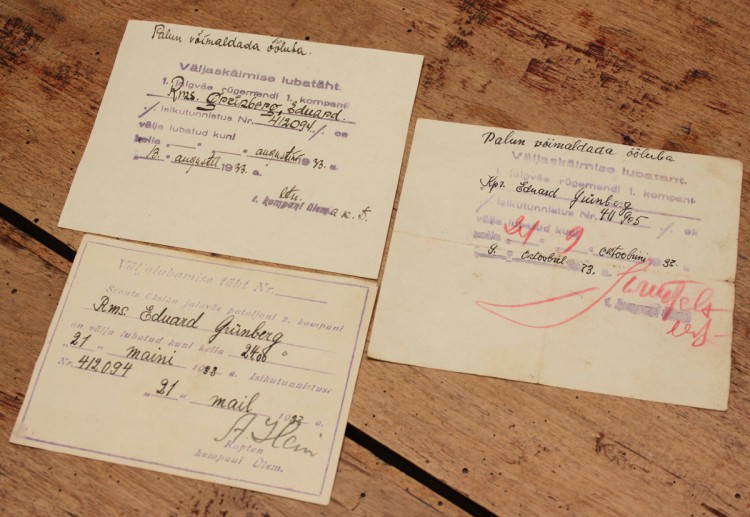 Palun võimaldada ööluba.
Väljaskäimise lubatäht.
1. jalgväe rügemendi 1. kompani
Rms. Grünberg, Eduard.
isikutunnistus Nr. 412094 on
välja lubatud kuni
kella augustini 1933. a.
13. augustil 1933. a.
1. kompani ülem
Palun võimaldada ööluba
Väljaskäimise lubatäht.
1. jalgväe rügemendi 1. kompani
Kpr. Eduard Grünberg
isikutunnistus Nr. on
välja lubatud kuni
kella 9 oktoobrini
9. oktoobril 33. a.
1. kompani ülem
Väljalubamise täht Nr.
Scouts üksiku jalaväe pataljoni 2. kompani
Rms. Eduard Grünberg
on välja lubatud kuni kella 2400
"21" maini 1933 a. Isikutunnistuse
Nr. 412094
"21" mail 1933 a.
A. Hein
Kapten
kompani Ülem.